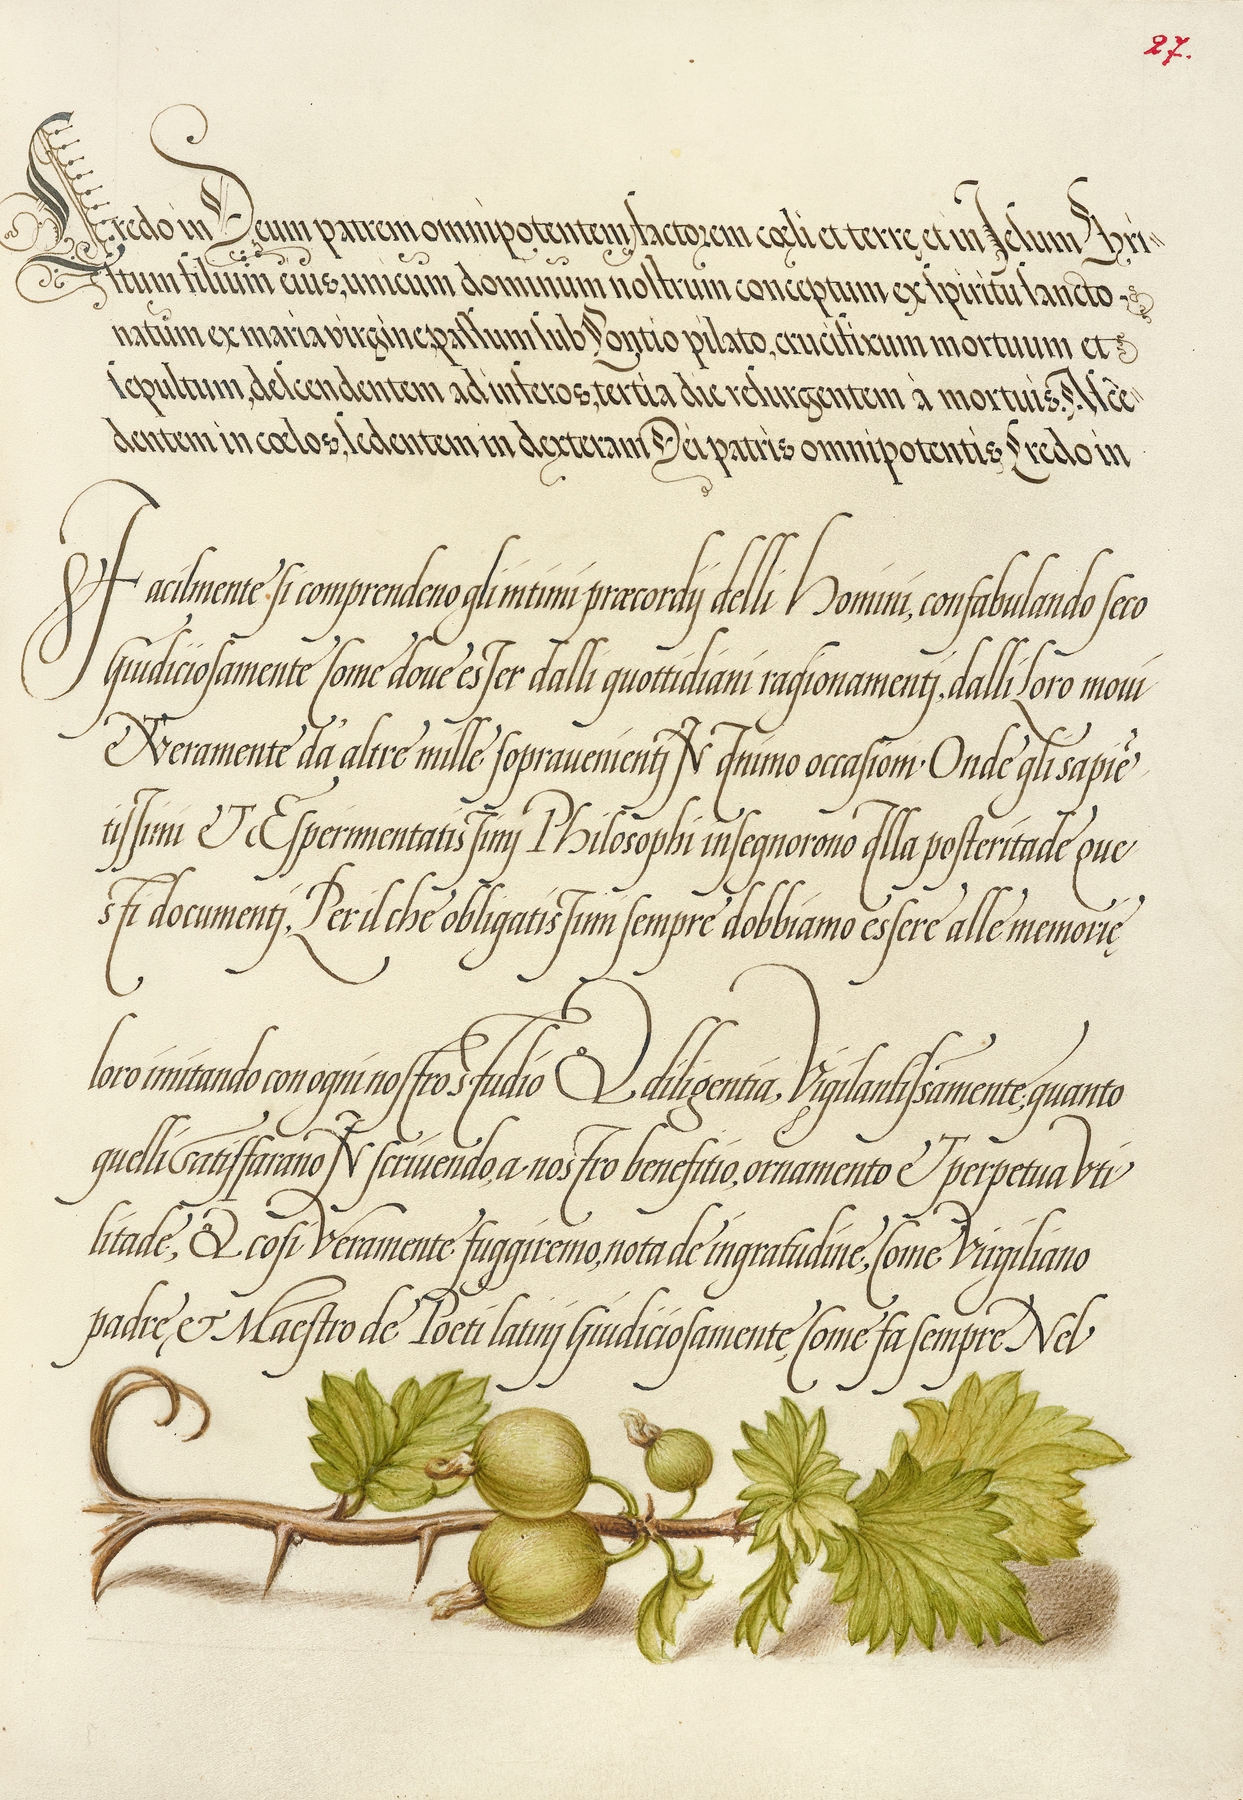 27.
Credo in Deum patrem omnipotentem, factorem cœli et terrę, et in Jesum Chri
stum filium eius, unicum dominum nostrum conceptum ex spiritu sancto
natum ex maria virgine, passum sub Pontio pilato, crucifixum mortuum et
sepultum, descendentem ad inferos, tertia die resurgentem à mortuis. Ascē
dentem in cœlos, sedentem in dexteram Dei patris omnipotentis, Credo in
Facilmente si comprendeno gli intimi præcordij delli Homini, confabulando seco
Giudiciosamente Come doue esser dalli quottidiani ragionamentj, dalli Loro moui
Veramente da altre mille soprauenientj N Animo occasioni. Onde gli sapiē
tissimi ET Esperimentatissimj Philosophi insegnorono Alla posteritade que
sti documentj. Per il che obligatissimi sempre dobbiamo essere alle memorię
loro imitando con ogni nostro studio & diligentia, Vigilantissamente, quanto
quelli Satisffarano N scriuendo, a nostro benefitio, ornamento ET perpetua Vti
litade, & cosi Veramente fuggiremo, nota de ingratudine, Come Virgiliano
padre, & Maestro de Poeti latinj Giudiciosamente, Come fa sempre Nel